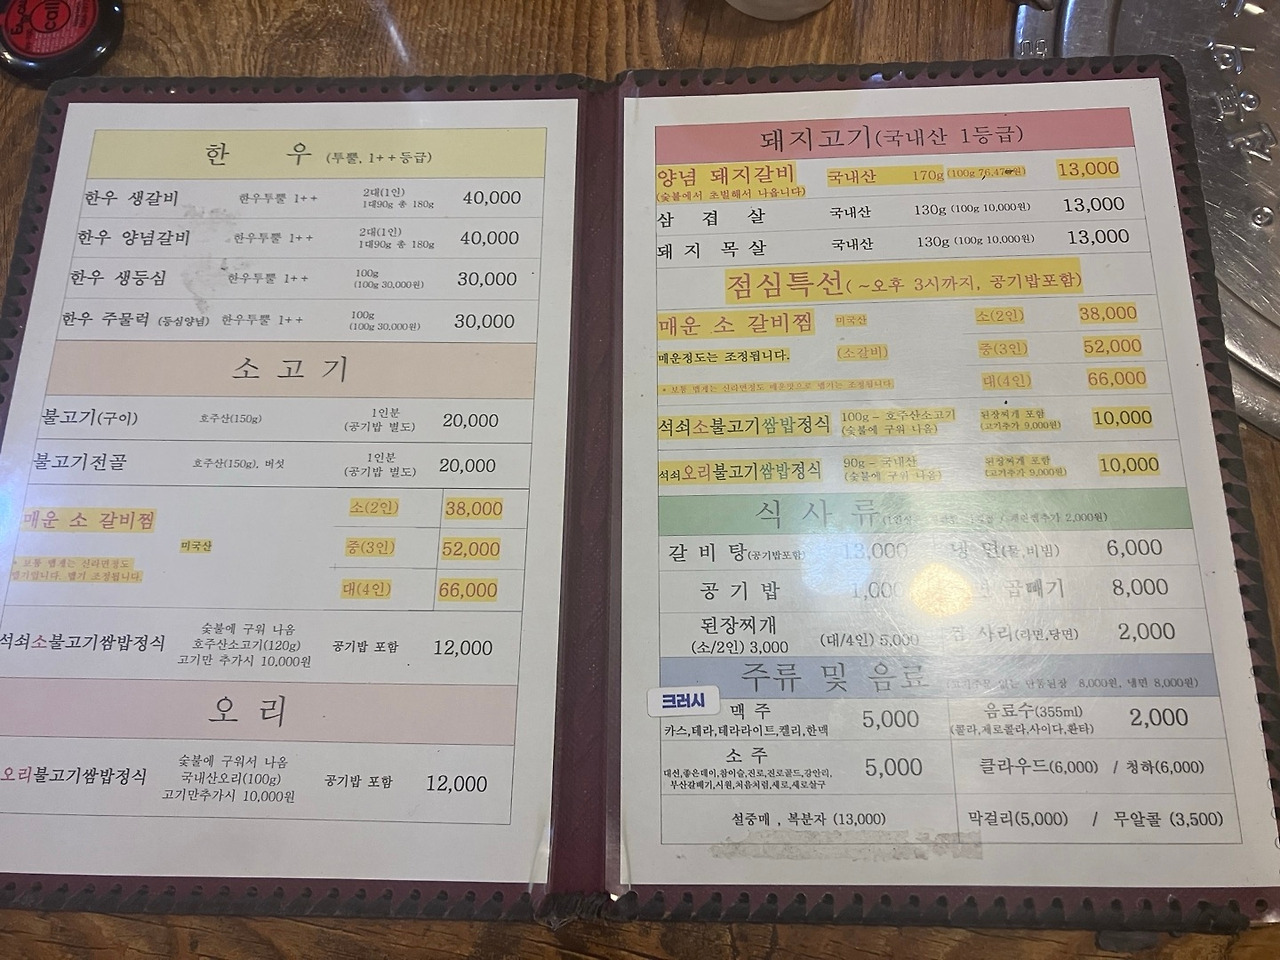 call
한 우 (투뿔, 1++등급)
한우 생갈비 한우투뿔 1++ 2대(1인) 40,000
1대90g 총 180g
한우 양념갈비 한우투뿔 1++ 2대(1인) 40,000
1대90g 총 180g
한우 생등심 한우투뿔 1++ 100g 30,000
(100g 30,000원)
한우 주물럭 (등심양념) 한우투뿔 1++ 100g 30,000
(100g 30,000원)
소 고 기
불고기(구이) 호주산(150g) 1인분 20,000
(공기밥 별도)
불고기전골 호주산(150g), 버섯 1인분 20,000
(공기밥 별도)
매운 소 갈비찜 소(2인) 38,000
미국산 중(3인) 52,000
* 보통 맵게는 신라면정도
맵기입니다. 맵기 조정됩니다.
대(4인) 66,000
석쇠소불고기쌈밥정식 숯불에 구워 나옴 공기밥 포함 12,000
호주산소고기(120g)
고기만 추가시 10,000원
오 리
오리불고기쌈밥정식 숯불에 구워서 나옴 공기밥 포함 12,000
국내산오리(100g)
고기만추가시 10,000원
돼지고기(국내산 1등급)
양념 돼지갈비 국내산 170g 13,000
(숯불에서 초벌해서 나옵니다)
삼 겹 살 국내산 130g (100g 10,000원) 13,000
돼 지 목 살 국내산 130g (100g 10,000원) 13,000
점심특선( ~오후 3시까지, 공기밥포함)
매운 소 갈비찜 미국산 소(2인) 38,000
매운정도는 조정됩니다. (소갈비) 중(3인) 52,000
* 보통 맵게는 신라면정도 매운맛으로 맵기는 조정됩니다. 대(4인) 66,000
석쇠소불고기쌈밥정식 100g - 호주산소고기 된장찌개 포함 10,000
(숯불에 구워 나옴) (고기추가 9,000원)
석쇠오리불고기쌈밥정식 90g - 국내산 된장찌개 포함 10,000
(숯불에 구워 나옴) (고기추가 9,000원)
식 사 류 2,000원)
갈 비 탕(공기밥포함) 13,000 냉 면(물,비빔) 6,000
공 기 밥 1,000 곱빼기 8,000
된장찌개 사리(라면,당면) 2,000
(소/2인) 3,000 (대/4인) 5,000
주류 및 음료 8,000원, 냉면 8,000원)
크러시
맥 주 5,000 음료수(355ml) 2,000
카스,테라,테라라이트,켈리,한맥 (콜라,제로콜라,사이다,환타)
소 주 5,000 클라우드(6,000) / 청하(6,000)
대선,좋은데이,참이슬,진로,진로골드,강안리,
부산갈매기,시원,처음처럼,새로,새로살구
설중매 , 복분자 (13,000) 막걸리(5,000) / 무알콜 (3,500)